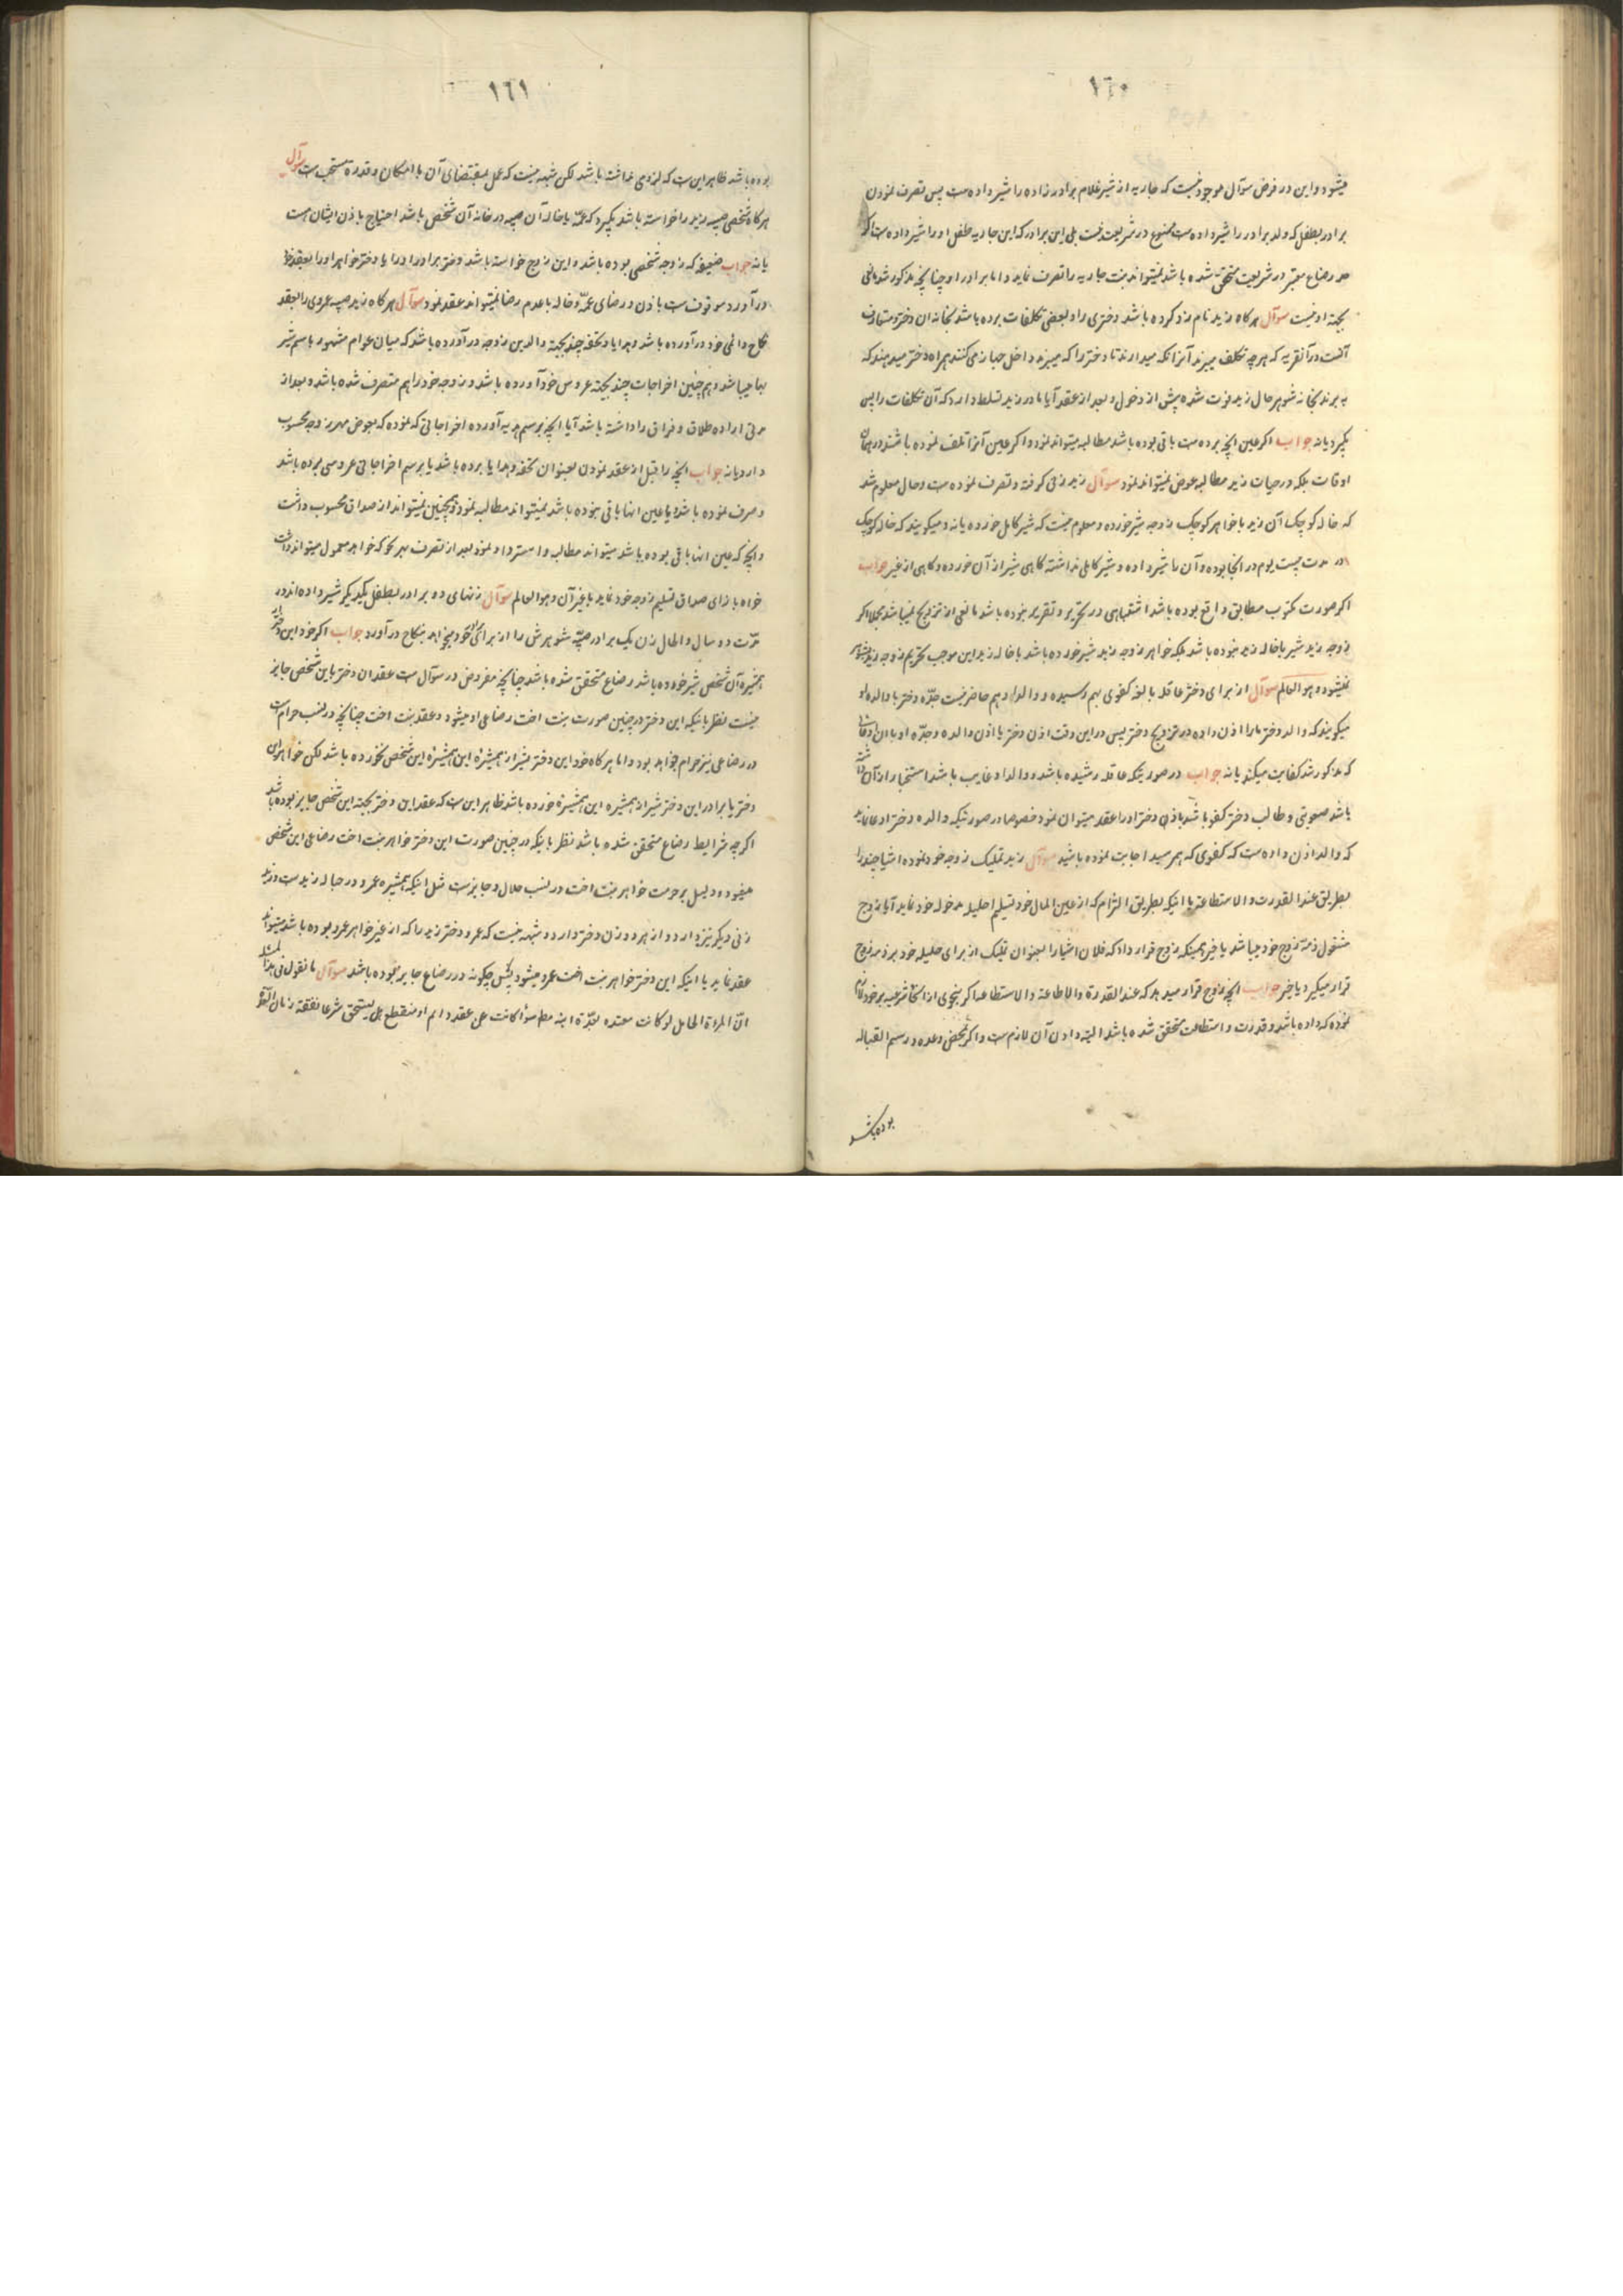 ١٦٠
میشود و این در فرض سوآل موجود نیست که جاریه از شیر غلام برادرزاده را شیر داده‌ست پس تصرف نمودن
برادر بطفل که ولد برادر را شیر داده‌ست ممنوع در شریعت نیست بلی این برادر که این جاریه طفل او را شیر داده‌ست اگر
حد رضاع معتبر در شریعت متحقق شده باشد نمیتواند بنت جاریه را تصرف نماید و اما برادر او چنانچه مذکور شد مانعی
بجهة او نیست سوآل هرکاه زید نام زد کرده باشد دختری را و بعضی تکلفات برده باشد بخانه ان دختر و متعارف
آنست در آنقریه که هرچه تکلف میبرند آنرا نکه میدارند تا دختر را که میبرند داخل جهاز می کنند همراه دختر میدهند که
به برند بخانه شوهر حال زید فوت شده پیش از دخول و بعد از عقد آیا مادر زید تسلط دارد که آن تکلفات را پس
بکیرد یا نه جواب اکر عین انچه برده‌ست باقی بوده باشد مطالبه میتواند نمود و اکر عین آنرا تلف نموده باشند در همان
اوقات بلکه در حیات زید مطالبه عوض نمیتواند نمود سوآل زید زنی کرفته و تصرف نموده‌ست و حال معلوم شد
که خاله کوچک آن زید با خواهر کوچک زوجه شیر خورده و معلوم نیست که شیر کامل خورده یا نه و میکویند که خاله کوچک
در مدت بیست یوم در انجا بوده و آن را شیر داده و شیر کاملی نداشته کاهی شیر از آن خورده و کاهی از غیر جواب
اکر صورت مکتوب مطابق واقع بوده باشد اشتباهی در تحریر و تقریر نبوده باشد مانعی از تزویج نمیباشد مجملا اکر
زوجه زید شیر با خاله زید نبوده باشد بلکه خواهر زوجه زید شیر خورده باشد با خاله زید این موجب تحریم زوجه زید بشوهر
نمیشود و هو العالم سوآل از برای دختر عاقله بالغه کفوی بهم رسیده و والد او هم حاضر نیست جدّه دختر با والده او
میکویند که والد دختر ما را اذن داده در تزویج دختر پس در این وقت اذن دختر با اذن والده و جدّه او با ان ادعائی
که مذکور شد کفایت میکند یا نه جواب در صورتیکه عاقله رشیده باشد و والد او غایب باشد استخبار از آن داشته
باشد صعوبتی و طالب دختر کفو باشد باذن دختر او را عقد میتوان نمود خصوصا در صورتیکه والده دختر ادعا نماید
که والد اذن داده‌ست که کفوی که بهم رسید اجابت نموده باشید سوآل زید تملیک زوجه خود نموده اشیا چند را
بطریق عند القدرت و الاستطاعة با اینکه بطریق التزام که از عین المال خود تسلیم احلیله مدخوله خود نماید آیا زوج
مشغول ذمهٔ زوج خود میباشد یا خیر بهمینکه زوج قرار داد که فلان اشیا را بعنوان تملیک از برای حلیله خود بر ذمه زوج
قرار میکیرد یا خیر جواب انچه زوج قرار میدهد که عند القدرة و الاطاعة و الاستطاعة اکر بنحوی از انحاء شرعیه بر خود لازم
نموده که داده باشد و قدرت و استطاعت متحقق شده باشد البته دادن آن لازم‌ست و اکر محض وعده و رسم القباله
بوده باشد
١٦١
بوده باشد ظاهر این‌ست که لزومی نداشته باشد لکن شبهه نیست که عمل بمقتضای آن با امکان و قدرة مستحب‌ست سوآل
هرکاه شخصی صبیه زید را خواسته باشد بکیرد که عمّه یا خاله آن صبیه در خانه آن شخص باشد احتیاج باذن ایشان هست
یا نه جواب ضعیفه که زوجه شخصی بوده باشد و این زوج خواسته باشد دختر برادر او را یا دختر خواهر او را بعقد خود
در آورد موقوف‌ست باذن و رضای عمّه و خاله با عدم رضا نمیتواند عقد نمود سوآل هرکاه زید صبیه عمروی را بعقد
نکاح دائمی خود در آورده باشد و هدایا و تحفه چند بجهة والدین زوجه در آورده باشد که میان عوام مشهور باسم شیر
بها میباشد و هم چنین اخراجات چند بجهة عروس خود آورده باشد و زوجه خود را هم متصرف شده باشد و بعد از
مدتی اراده طلاق و فراق را داشته باشد آیا انچه برسم هدیه آورده اخراجاتی که نموده که بعوض مهر زوجه محسوب
دارد یا نه جواب انچه را قبل از عقد نمودن بعنوان تحفه و هدایا برده باشد یا برسم اخراجاتی عروسی برده باشد
و صرف نموده باشد یا عین انها باقی نبوده باشد نمیتواند مطالبه نمود و همچنین نمیتواند از صداق محسوب داشت
و انچه که عین انها باقی بوده باشد میتواند مطالبه و استرداد نمود بعد از تصرف بهر نحو که خواهد معمول میتواند داشت
خواه بازای صداق تسلیم زوجه خود نماید یا بغیر آن و هو العالم سوآل زنهای دو برادر بطفل یکدیکر شیر داده‌اند در
مدّت دو سال و الحال زن یک برادر صبیّه شوهرش را از برای اخوی خود میخواهد بنکاح در آورد جواب اکر خود این دختر
همشیره آن شخص شیر خورده باشد رضاع متحقق شده باشد چنانچه مفروض در سوآل‌ست عقد ان دختر باین شخص جایز
نیست نظر بانیکه این دختر در چنین صورت بنت اخت رضاعی او میشود و عقد بنت اخت چنانچه در نسب حرام‌ست
در رضاعی نیز حرام خواهد بود و اما هرکاه خود این دختر شیر از همشیرهٔ این همشیرهٔ این شخص نخورده باشد لکن خواهر این
دختر یا برادر این دختر شیر از همشیره این همشیره خورده باشد ظاهر این‌ست که عقد این دختر بجهة این شخص جایز بوده باشد
اکرچه شرایط رضاع متحقق شده باشد نظر بانیکه در چنین صورت این دختر خواهر بنت اخت رضاعی این شخص
میشود و دلیل بر حرمت خواهر بنت اخت در نسب حلال و جایزست مثل اینکه همشیره عمرو در حباله زیدست و زید
زنی دیکر نیز دارد و از هر دو زن دختر دارد و شبهه نیست که عمرو دختر زید را که از غیر خواهر عمرو بوده باشد میتواند
عقد نماید با اینکه این دختر خواهر بنت اخت عمرو میشود پس چکونه در رضاع جایز نبوده باشد سوآل ما نقول فی هذا المسئله
انّ المراة الحامل لو کانت معتده بعدّة ابنه مطم سوا کانت عن عقد دایم او منقطع هل یستحق شرعا نفقة زمان العدّة